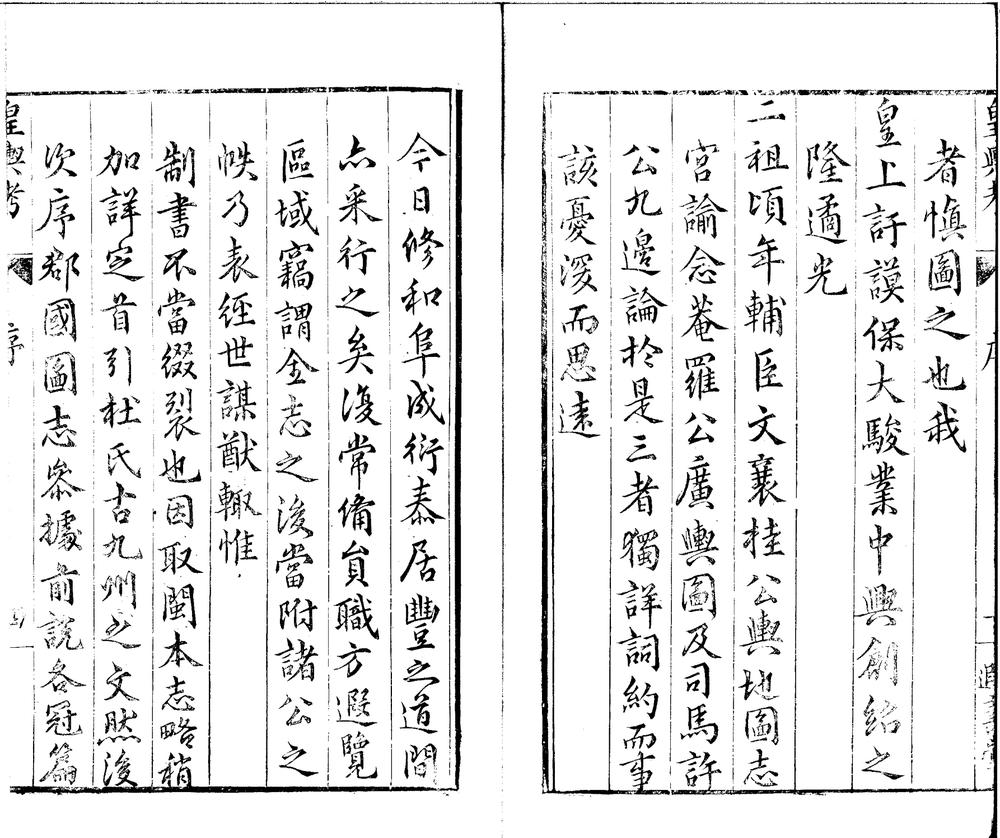 者慎圖之也我
皇上訏謨保大駿業中興創紹之
隆遹光
二祖頃年輔臣文襄桂公輿地圖志
宮諭念菴羅公廣輿圖及司馬許
公九邊論於是三者獨詳詞約而事
該憂深而思遠
今日修和阜成衍泰居豐之道間
亦采行之矣復常備員職方遐覽
區域竊謂金志之後當附諸公之
帙乃表經世謀猷輙惟
制書不當綴裂也因取閩本志略稍
加詳定首引杜氏古九州之文然後
次序郡國圖志叅據前說各冠篇
皇輿考
序